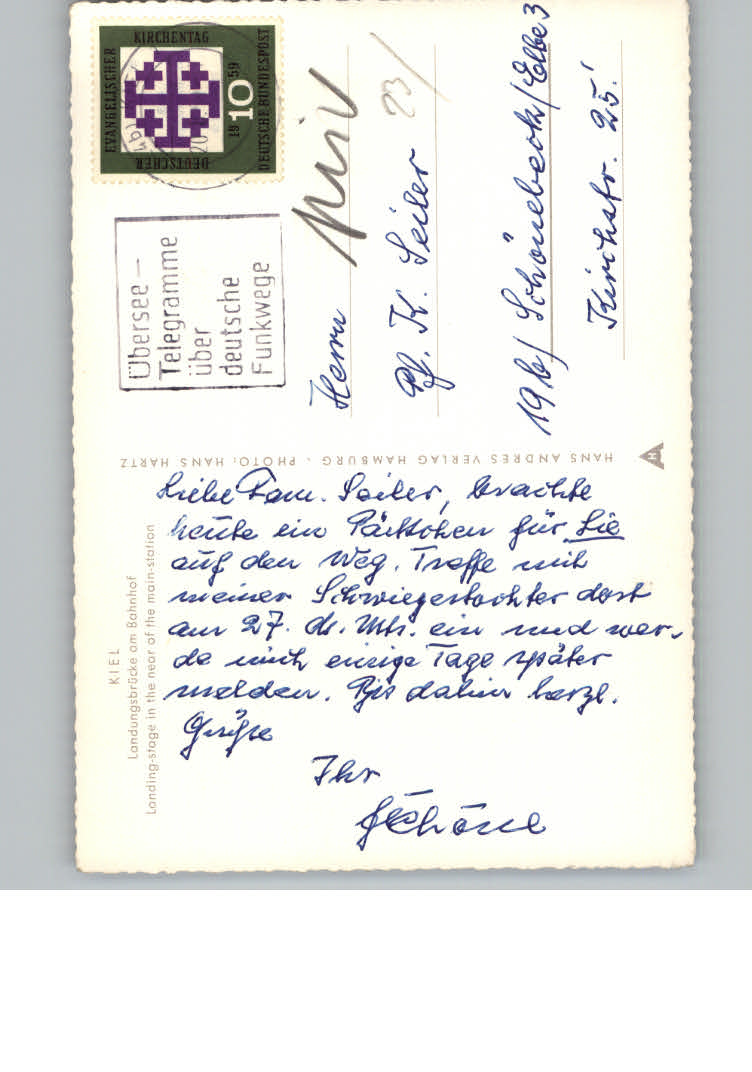 Liebe Fam. Seiler, brachte
heute ein Päckchen für Sie
auf den Weg. Treffe mit
meiner Schwiegertochter dort
am 27. ds. Mts. ein und wer-
de mich einige Tage später
melden. Bis dahin herzl.
Grüße
Ihr
GSchöne
KIEL
Landungsbrücke am Bahnhof
Landing-stage in the near of the main-station
HANS ANDRES VERLAG HAMBURG · PHOTO: HANS HARTZ
H
DEUTSCHER
EVANGELISCHER
KIRCHENTAG
1959
10
DEUTSCHE BUNDESPOST
Übersee –
Telegramme
über
deutsche
Funkwege
23/
Herrn
Pf. K. Seiler
19b/ Schönebeck/Elbe 3
Kirchstr. 25.